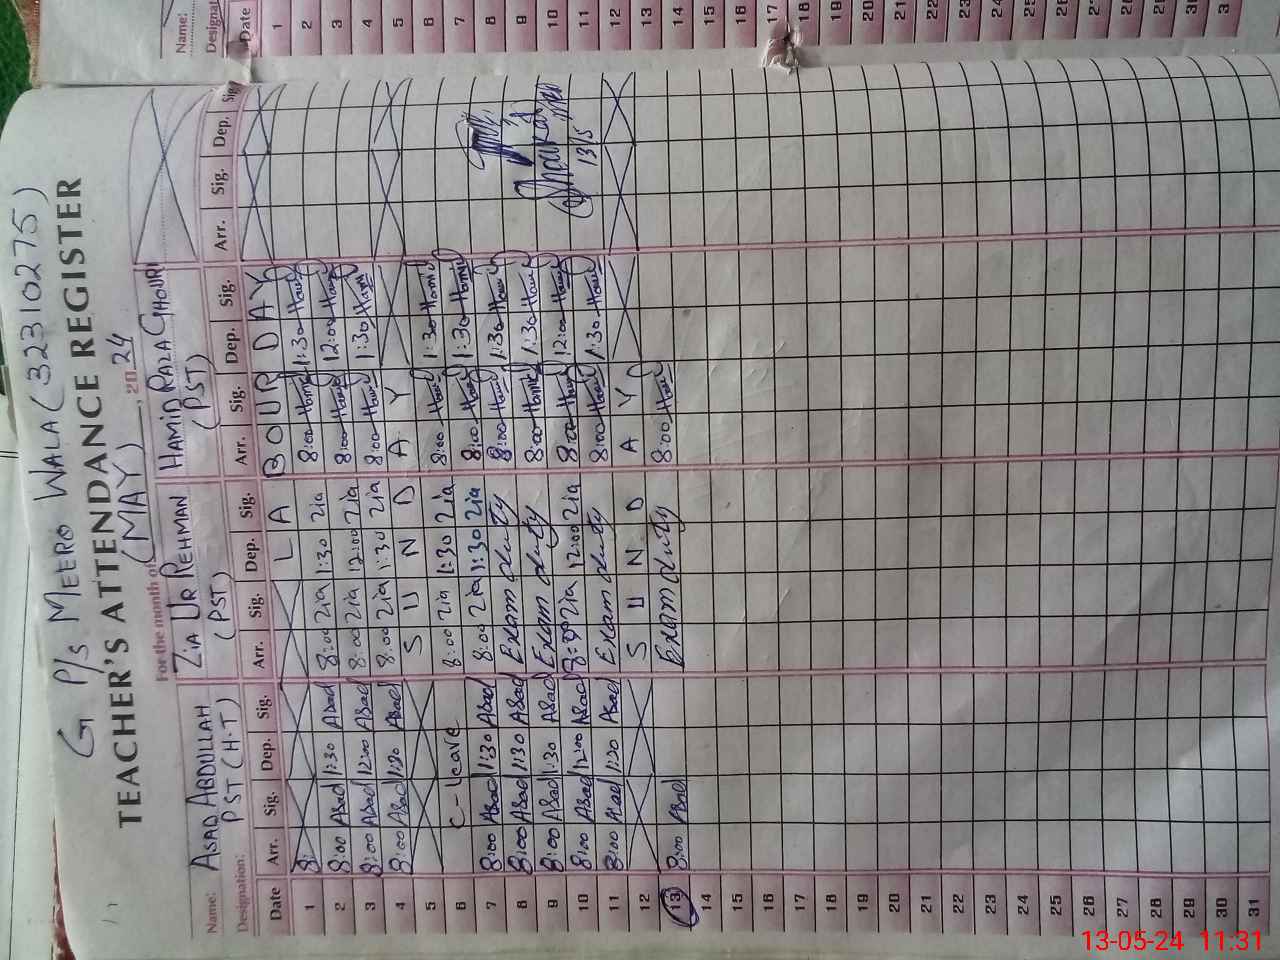 G P/s MEERO WALA (32310275)
TEACHER'S ATTENDANCE REGISTER
For the month of (MAY), 2024
Name: ASAD ABDULLAH ZIA UR REHMAN HAMID RAZA GHOURI
Designation: PST (H.T) (PST) (PST)
Date Arr. Sig. Dep. Sig. Arr. Sig. Dep. Sig. Arr. Sig. Dep. Sig. Arr. Sig. Dep. Sig.
1 8: L A B O U R D A Y
2 8:00 Asad 1:30 Asad 8:00 Zia 1:30 Zia 8:00 Hamid 1:30 Hamid
3 8:00 Asad 12:00 Asad 8:00 Zia 12:00 Zia 8:00 Hamid 12:00 Hamid
4 8:00 Asad 1:30 Asad 8:00 Zia 1:30 Zia 8:00 Hamid 1:30 Hamid
5 S U N D A Y
6 C-Leave 8:00 Zia 1:30 Zia 8:00 Hamid 1:30 Hamid
7 8:00 Asad 1:30 Asad 8:00 Zia 1:30 Zia 8:00 Hamid 1:30 Hamid
8 8:00 Asad 1:30 Asad Exam duty 8:00 Hamid 1:30 Hamid
9 8:00 Asad 1:30 Asad Exam duty 8:00 Hamid 1:30 Hamid
10 8:00 Asad 12:00 Asad Zia 12:00 Zia 8:00 Hamid 12:00 Hamid
11 8:00 Asad 1:30 Asad Exam duty 8:00 Hamid 1:30 Hamid 13/5
12 S U N D A Y
13 8:00 Asad Exam duty 8:00 Hamid
14
15
16
17
18
19
20
21
22
23
24
25
26
27
28
29
30
31
Name:
Designat
Date
1
2
3
4
5
6
7
8
9
10
11
12
13
14
15
16
17
18
19
20
21
22
23
24
25
26
27
28
29
30
3
13-05-24 11:31